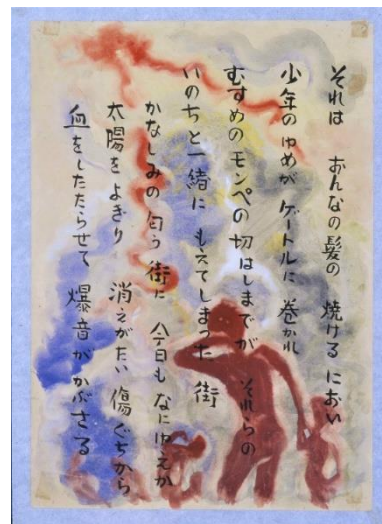 それは おんなの髪の 焼けるにおい
少年のゆめが ゲートルに 巻かれ
むすめのモンペの切はしまでが それらの
いのちと一緒に もえてしまった 街
かなしみの匂う街に 今日もなにゆえか
太陽をよぎり 消えがたい傷ぐちから
血をしたたらせて 爆音がかぶさる